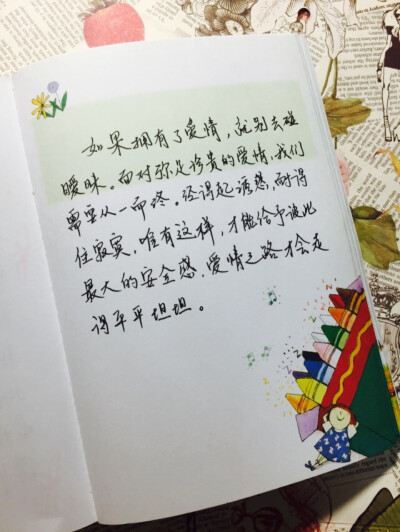 如果拥有了爱情，就别去碰
暧昧。面对弥足珍贵的爱情，我们
需要从一而终。经得起诱惑，耐得
住寂寞，唯有这样，才能给予彼此
最大的安全感，爱情之路才会走
得平平坦坦。